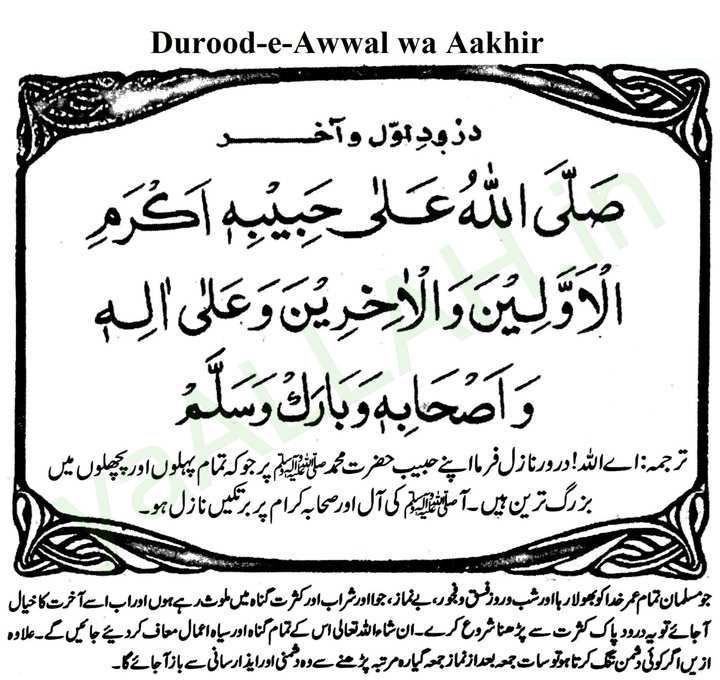 Durood-e-Awwal wa Aakhir
درودِ اوّل و آخر
صَلَّی اللّٰهُ عَلٰی حَبِیْبِهٖ اَکْرَمِ
الْاَوَّلِیْنَ وَالْاٰخِرِیْنَ وَعَلٰی اٰلِهٖ
وَاَصْحَابِهٖ وَبَارَكْ وَسَلَّمْ
ترجمہ: اے اللہ! درود نازل فرما اپنے حبیب حضرت محمد ﷺ پر جو کہ تمام پہلوں اور پچھلوں میں
بزرگ ترین ہیں۔ آپ ﷺ کی آل اور صحابہ کرام پر برکتیں نازل ہو۔
جو مسلمان تمام عمر خدا کو بھولا رہا اور شب و روز فسق و فجور، بے نماز، جوا اور شراب اور کثرت گناہ میں ملوث رہے ہوں اور اب اسے آخرت کا خیال
آجائے تو یہ درود پاک کثرت سے پڑھنا شروع کرے۔ ان شاء اللہ تعالیٰ اس کے تمام گناہ اور سیاہ اعمال معاف کر دیئے جائیں گے۔ علاوہ
ازیں اگر کوئی دشمن تنگ کرتا ہو تو سات جمعہ بعد از نماز جمعہ گیارہ مرتبہ پڑھنے سے وہ دشمنی اور ایذا رسانی سے باز آجائے گا۔